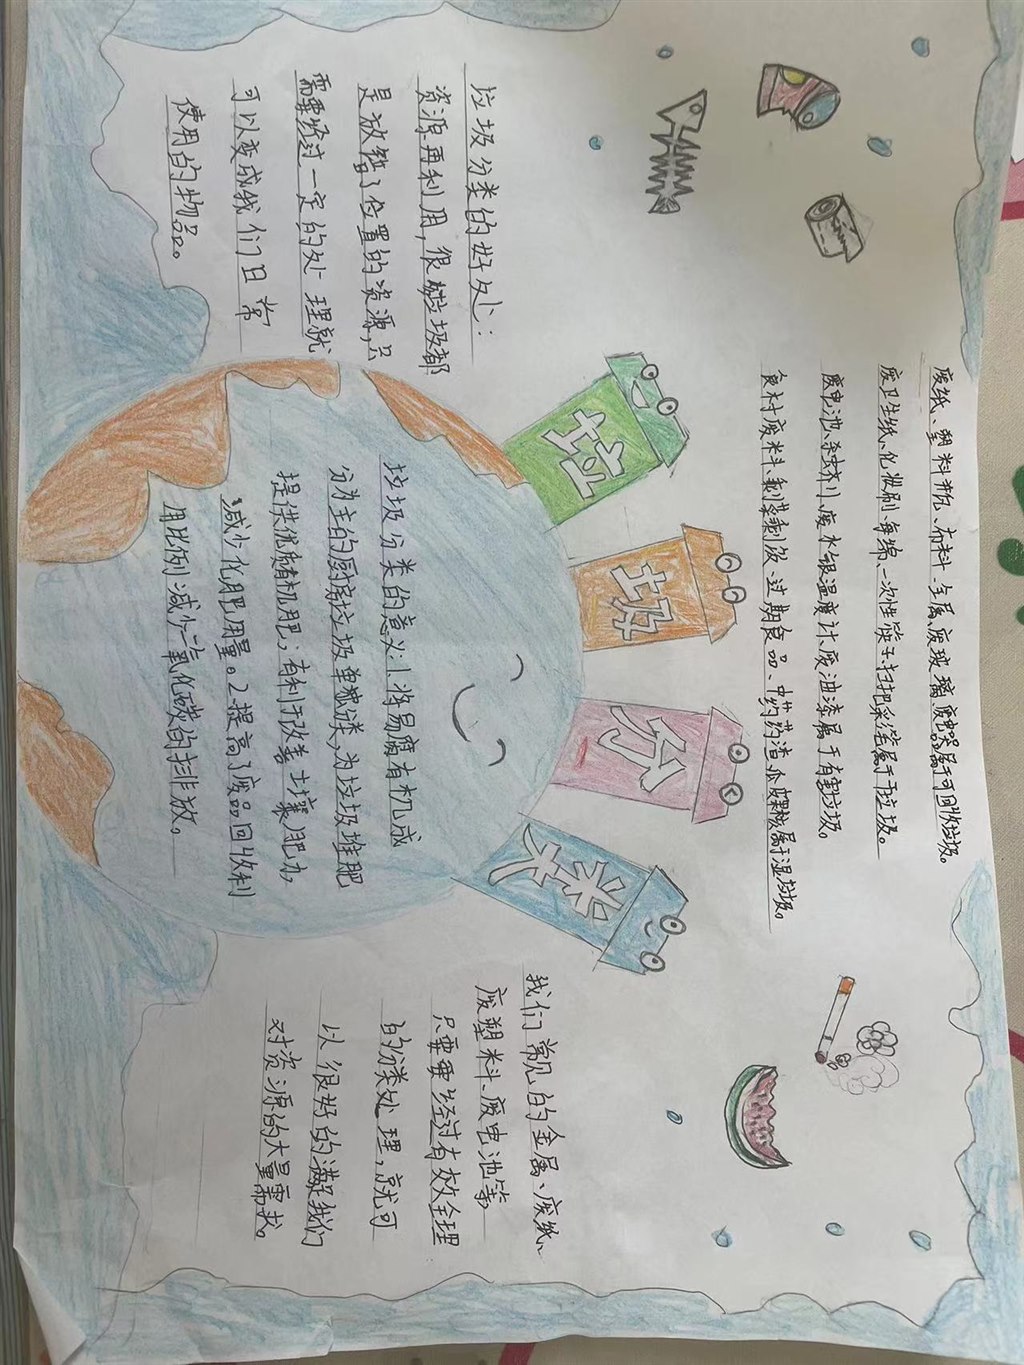 废纸、塑料瓶、布料、金属、废玻璃、废电器属于可回收垃圾。
废卫生纸、化妆刷、海绵、一次性筷子、扫把等属于干垃圾。
废电池、杀虫剂、废水银温度计、废油漆属于有害垃圾。
食材废料、剩菜剩饭、过期食品、中药药渣、瓜皮果核属于湿垃圾。
垃
圾
分
类
垃圾分类的好处：
资源再利用，很多垃圾都
是放错了位置的资源，只
需要经过一定的处理就
可以变成我们日常
使用的物品。
垃圾分类的意义：1.将易腐有机成
分为主的厨房垃圾单独分类，为垃圾堆肥
提供优质有机肥；有利于改善土壤肥力，
减少化肥用量。2.提高了废品回收利
用比例，减少二氧化碳的排放。
我们常见的金属、废纸、
废塑料、废电池等
只要要经过有效合理
的分类处理，就可
以很好的满足我们
对资源的大量需求。